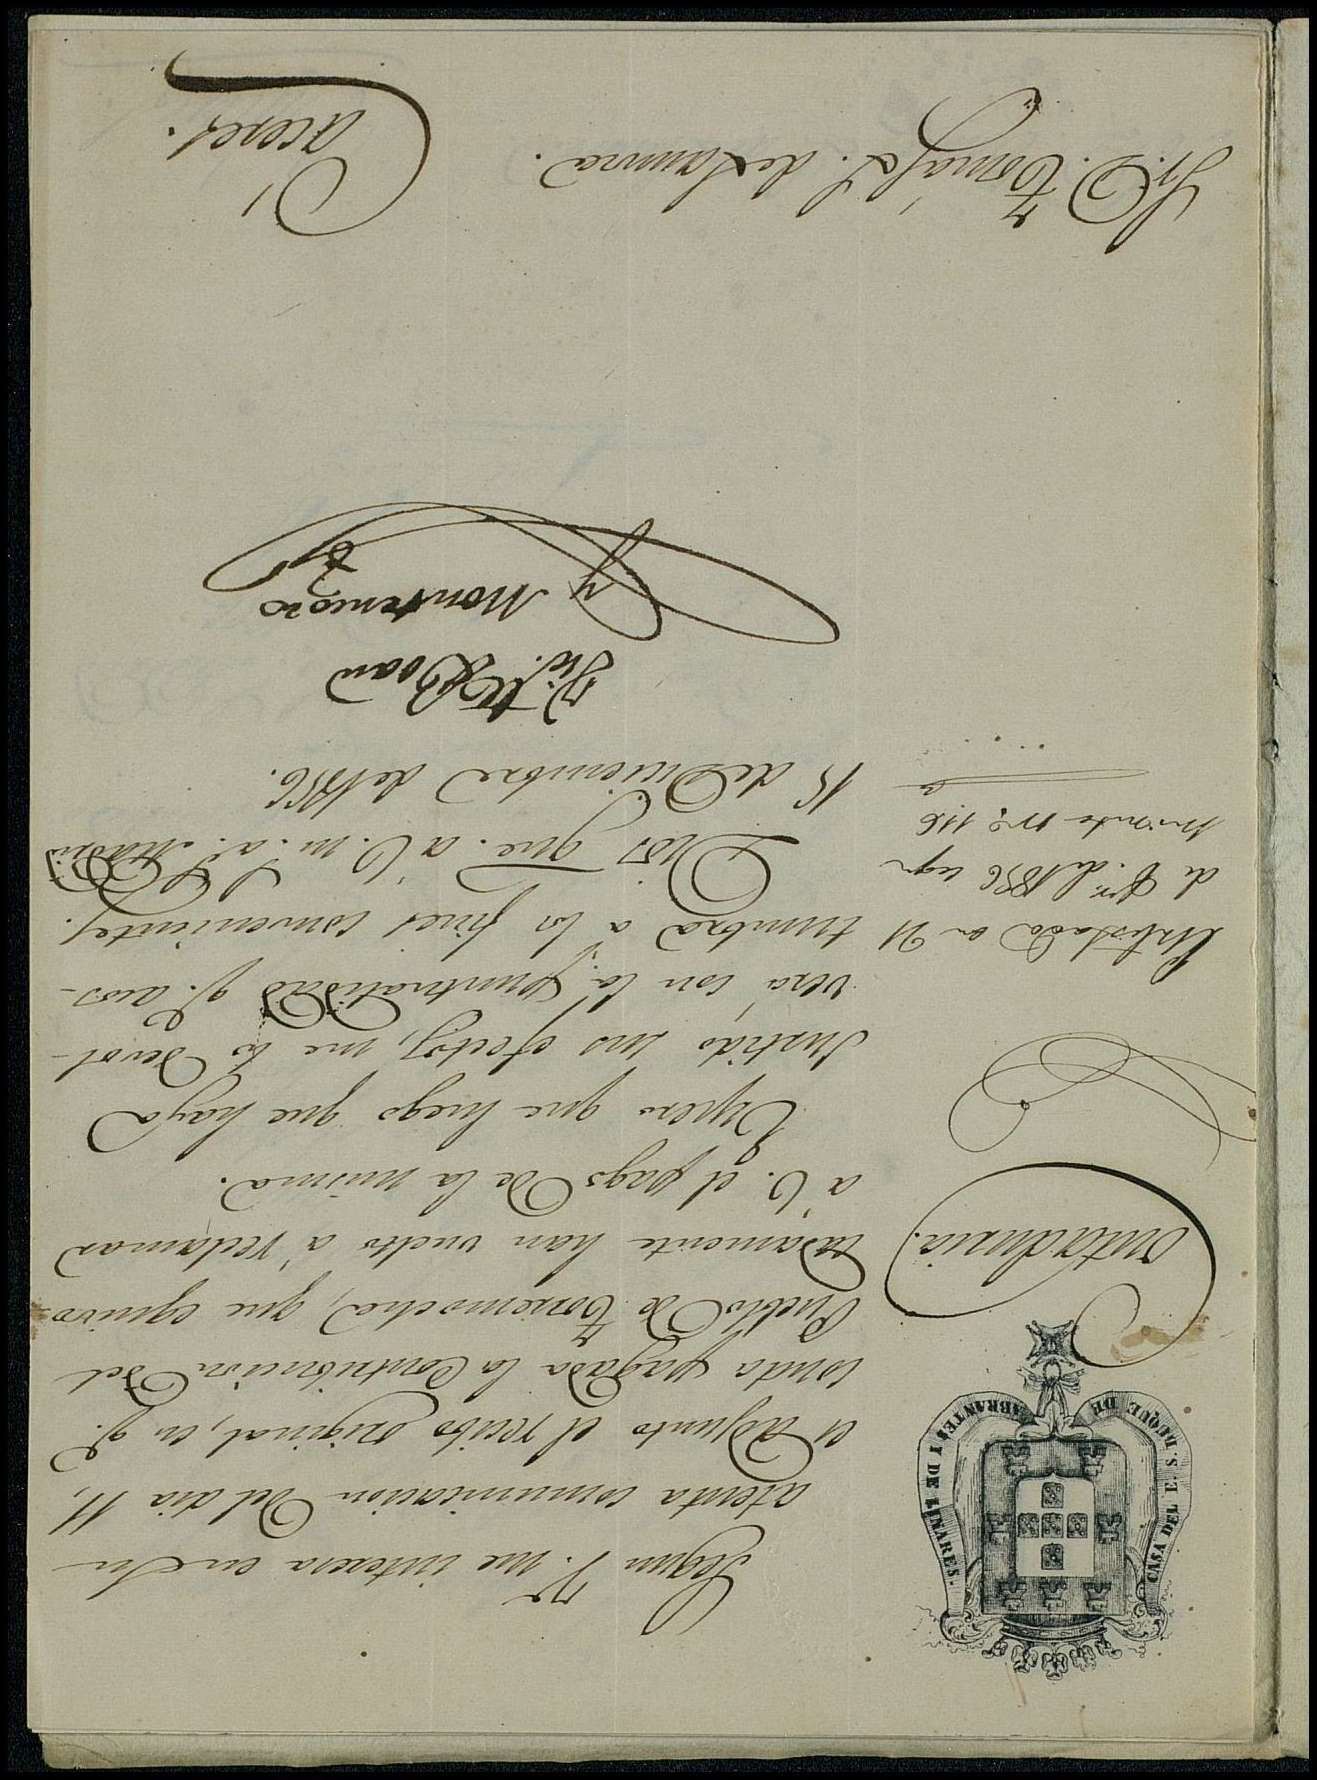 CASA DEL E. S. DUQUE DE ABRANTES I DE LINARES.
Contaduria.
Contestado en 21
de Dre. de 1856 segn
minuta nº 116
Segun V. me interesa en su
atenta comunicacion del dia 11,
es adjunto el recibo original, en q.
consta pagada la Contribucion del
Pueblo de Torremocha, que equivo-
cadamente han vuelto á reclamar
á V. el pago de la misma.
Espero que luego que haya
surtido sus efectos, me lo devol-
verá con la puntualidad q. acos-
tumbra á los fines convenientes.
Dios gue. á V. m. a. Madrid
15 de Diciembre de 1856.
Boan
y Montenegro
Sr. D. Tomás S. de
Caceres.